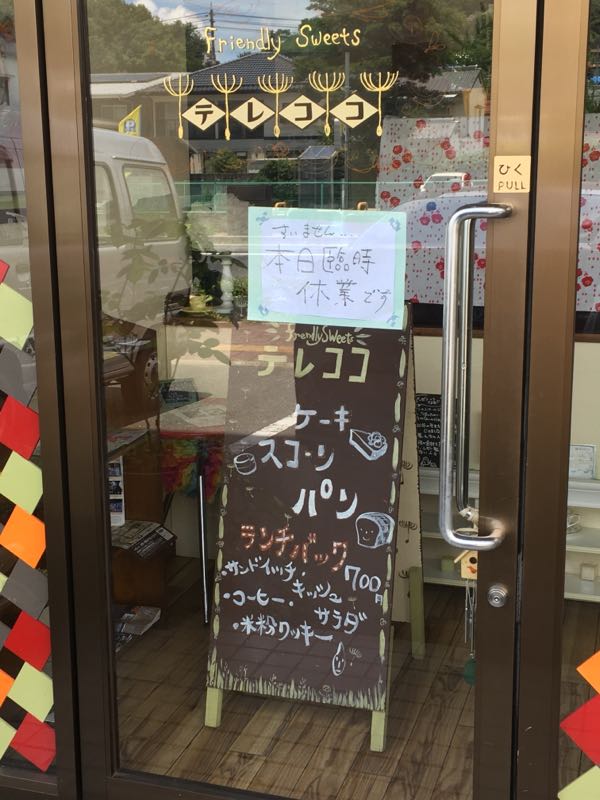 Friendly Sweets
テレココ
ひく
PULL
すいません...
本日臨時
休業です
Friendly Sweets
テレココ
ケーキ
スコーン
パン
ランチバック
700円
・サンドイッチ・キッシュ
・コーヒー・サラダ
・米粉クッキー
P